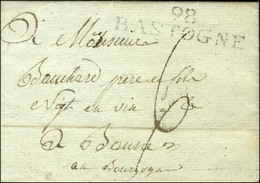 98
BASTOGNE
De Monsieur
Bouchard père et fils
Negt en vin
6
a Beaune
en Bourgogne